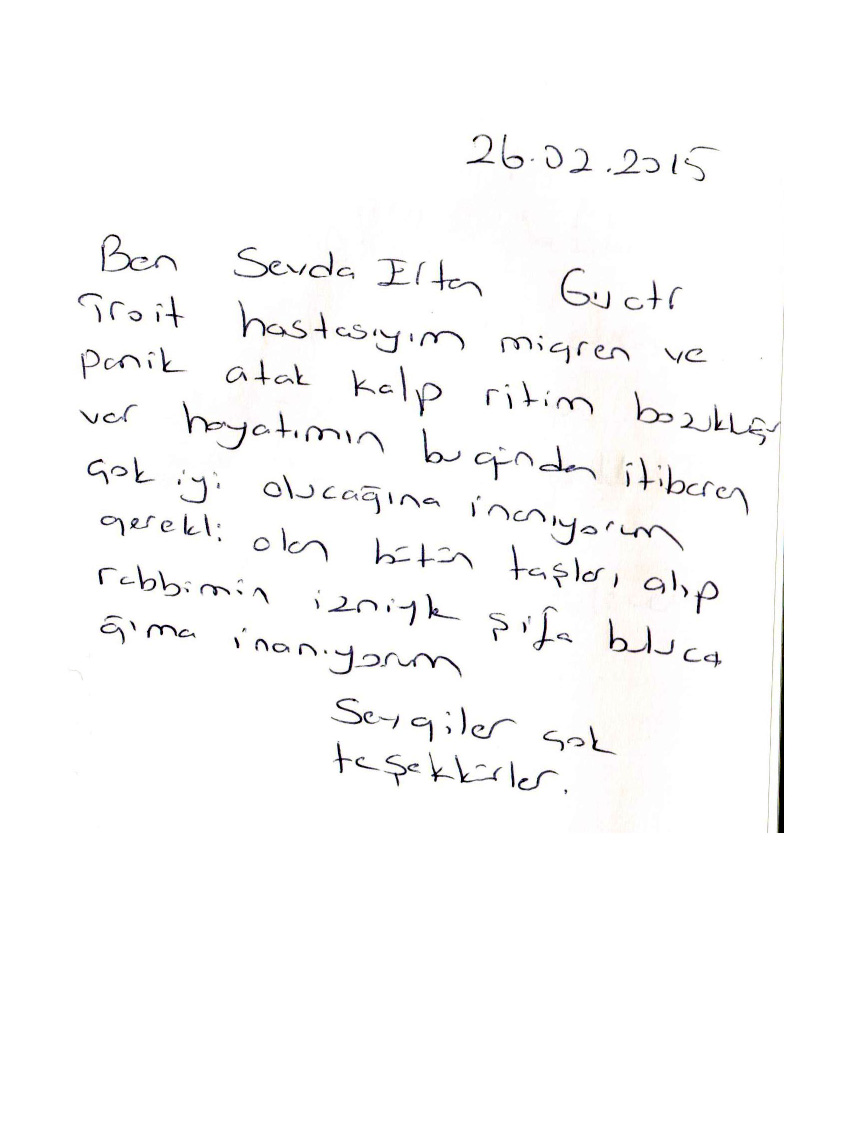 26.02.2015
Ben Sevda Guatr
Troit hastasıyım migren ve
panik atak kalp ritim
var hayatımın bu günden itibaren
çok iyi olucağına inanıyorum
gerekli olan bütün taşları alıp
rabbimin izniyle şifa buluca
ğıma inanıyorum
Sevgiler çok
teşekkürler.